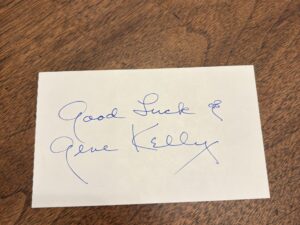 Good Luck &
Gene Kelly